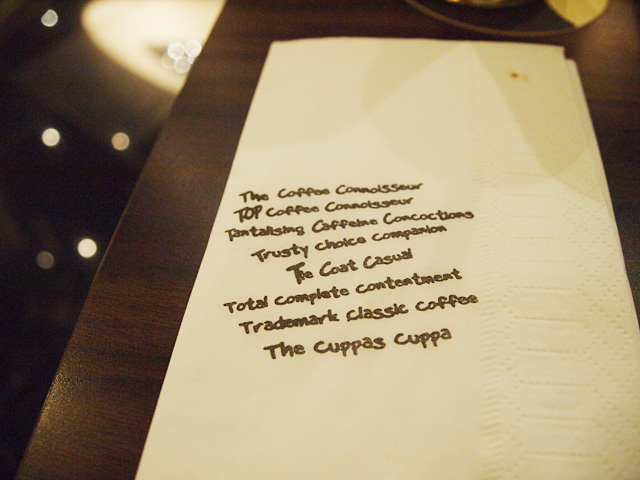 The Coffee Connoisseur
TOP Coffee Connoisseur
Tantalising Caffeine Concoctions
Trusty choice companion
The Coat Casual
Total complete contentment
Trademark classic coffee
The Cuppas Cuppa